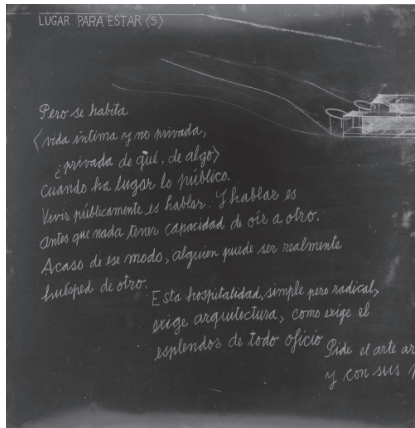 LUGAR PARA ESTAR (5)
Pero se habita
(vida íntima y no privada,
¿privada de qué, de algo)
Cuando ha lugar lo público.
Vivir públicamente es hablar. Y hablar es
antes que nada tener capacidad de oír a otro.
Acaso de ese modo, alguien puede ser realmente
huésped de otro.
Esta hospitalidad, simple pero radical,
exige arquitectura, como exige el
esplendos de todo oficio
Pide el arte ar
y con sus